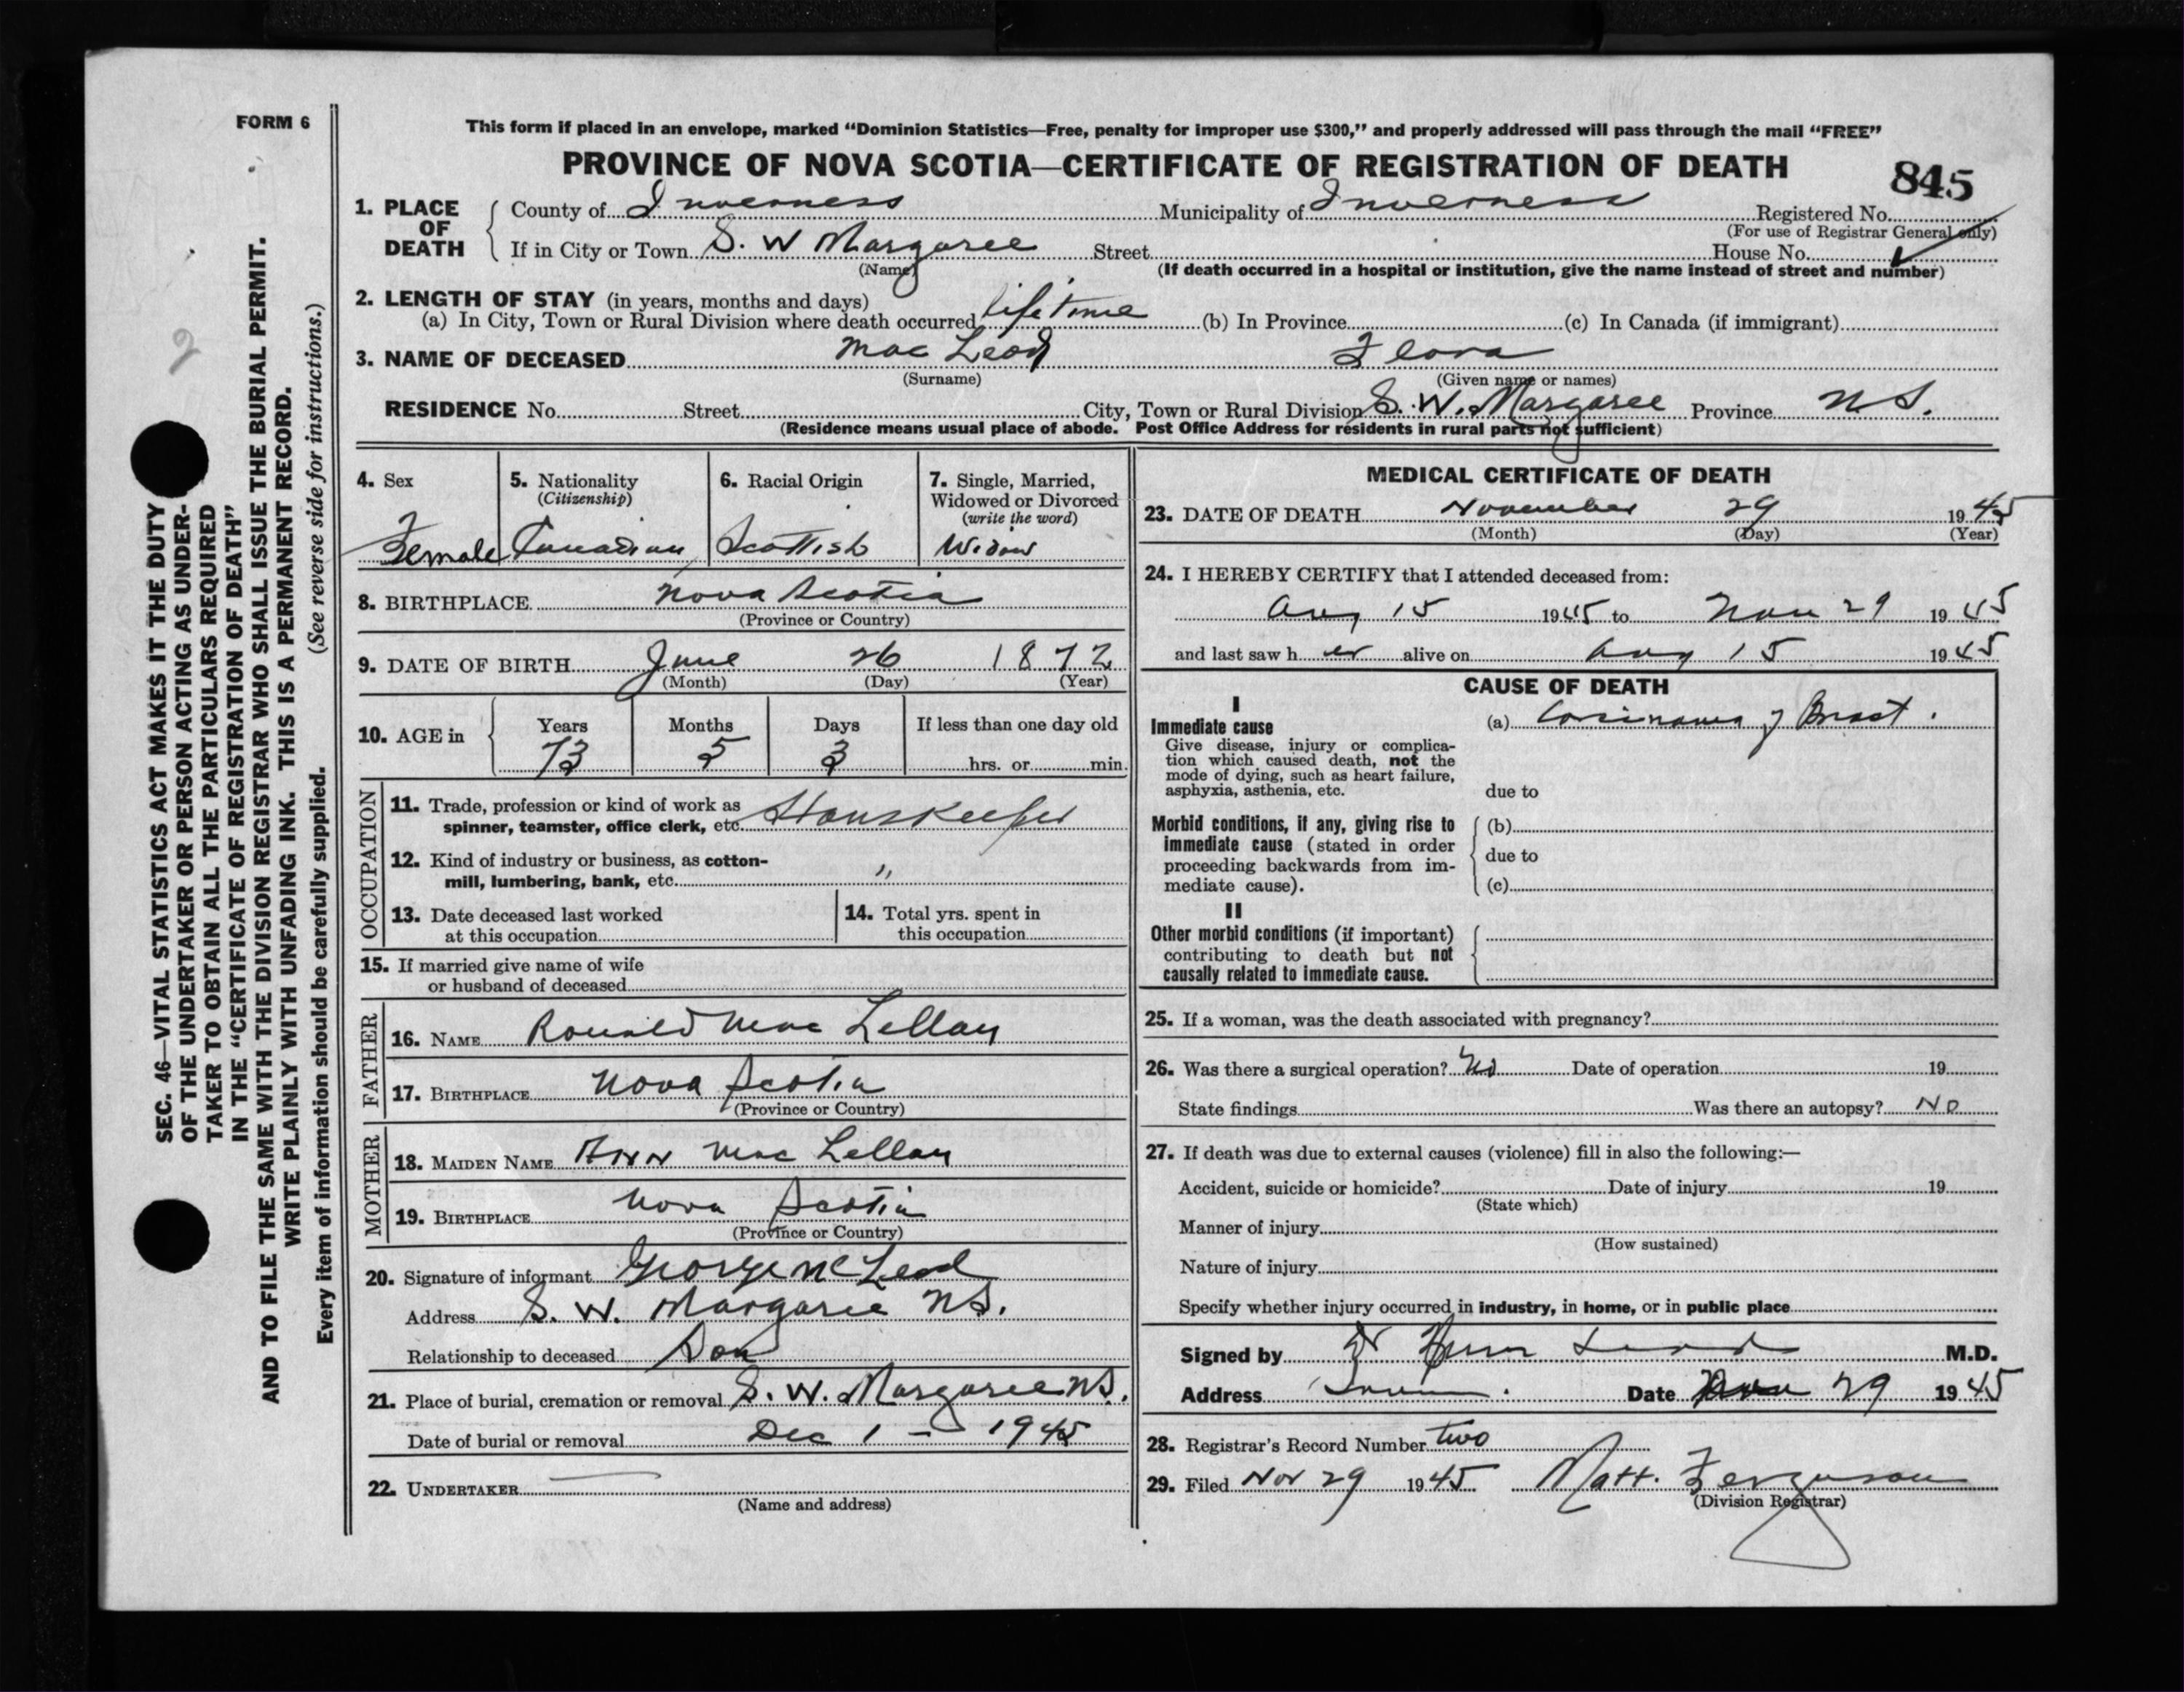 FORM 6
This form if placed in an envelope, marked “Dominion Statistics—Free, penalty for improper use $300,” and properly addressed will pass through the mail “FREE”
PROVINCE OF NOVA SCOTIA—CERTIFICATE OF REGISTRATION OF DEATH
845
1. PLACE OF DEATH
County of Inverness Municipality of Inverness Registered No.
(For use of Registrar General only)
If in City or Town S. W Margaree Street House No.
(Name) (If death occurred in a hospital or institution, give the name instead of street and number)
2. LENGTH OF STAY (in years, months and days)
(a) In City, Town or Rural Division where death occurred lifetime (b) In Province (c) In Canada (if immigrant)
3. NAME OF DECEASED Mac Leod Flora
(Surname) (Given name or names)
RESIDENCE No. Street City, Town or Rural Division S. W. Margaree Province N. S.
(Residence means usual place of abode. Post Office Address for residents in rural parts not sufficient)
4. Sex
Female
5. Nationality
(Citizenship)
Canadian
6. Racial Origin
Scottish
7. Single, Married,
Widowed or Divorced
(write the word)
Widow
8. BIRTHPLACE Nova Scotia
(Province or Country)
9. DATE OF BIRTH June 26 1872
(Month) (Day) (Year)
10. AGE in Years Months Days If less than one day old
73 5 3 hrs. or min.
OCCUPATION
11. Trade, profession or kind of work as
spinner, teamster, office clerk, etc. Houskeeper
12. Kind of industry or business, as cotton-
mill, lumbering, bank, etc. "
13. Date deceased last worked
at this occupation
14. Total yrs. spent in
this occupation
15. If married give name of wife
or husband of deceased
FATHER
16. NAME Ronald Mac Lellan
17. BIRTHPLACE Nova Scotia
(Province or Country)
MOTHER
18. MAIDEN NAME Ann Mac Lellan
19. BIRTHPLACE Nova Scotia
(Province or Country)
20. Signature of informant George McLeod
Address S. W. Margaree N.S.
Relationship to deceased Son
21. Place of burial, cremation or removal S. W. Margaree N.S.
Date of burial or removal Dec 1 - 1945
22. UNDERTAKER
(Name and address)
MEDICAL CERTIFICATE OF DEATH
23. DATE OF DEATH November 29 1945
(Month) (Day) (Year)
24. I HEREBY CERTIFY that I attended deceased from:
Aug 15 1945 to Nov 29 1945
and last saw her alive on Aug 15 1945
CAUSE OF DEATH
I
Immediate cause
Give disease, injury or complica-
tion which caused death, not the
mode of dying, such as heart failure,
asphyxia, asthenia, etc.
(a) Carcinoma of Breast.
due to
Morbid conditions, if any, giving rise to
immediate cause (stated in order
proceeding backwards from im-
mediate cause).
(b)
due to
(c)
II
Other morbid conditions (if important)
contributing to death but not
causally related to immediate cause.
25. If a woman, was the death associated with pregnancy?
26. Was there a surgical operation? No Date of operation 19
State findings Was there an autopsy? NO
27. If death was due to external causes (violence) fill in also the following:—
Accident, suicide or homicide? Date of injury 19
(State which)
Manner of injury
(How sustained)
Nature of injury
Specify whether injury occurred in industry, in home, or in public place
Signed by Dr M.D.
Address Date Nov 29 1945
28. Registrar's Record Number two
29. Filed Nov 29 1945 Matt. Ferguson
(Division Registrar)
SEC. 46—VITAL STATISTICS ACT MAKES IT THE DUTY
OF THE UNDERTAKER OR PERSON ACTING AS UNDER-
TAKER TO OBTAIN ALL THE PARTICULARS REQUIRED
IN THE “CERTIFICATE OF REGISTRATION OF DEATH”
AND TO FILE THE SAME WITH THE DIVISION REGISTRAR WHO SHALL ISSUE THE BURIAL PERMIT.
WRITE PLAINLY WITH UNFADING INK. THIS IS A PERMANENT RECORD.
Every item of information should be carefully supplied. (See reverse side for instructions.)
2